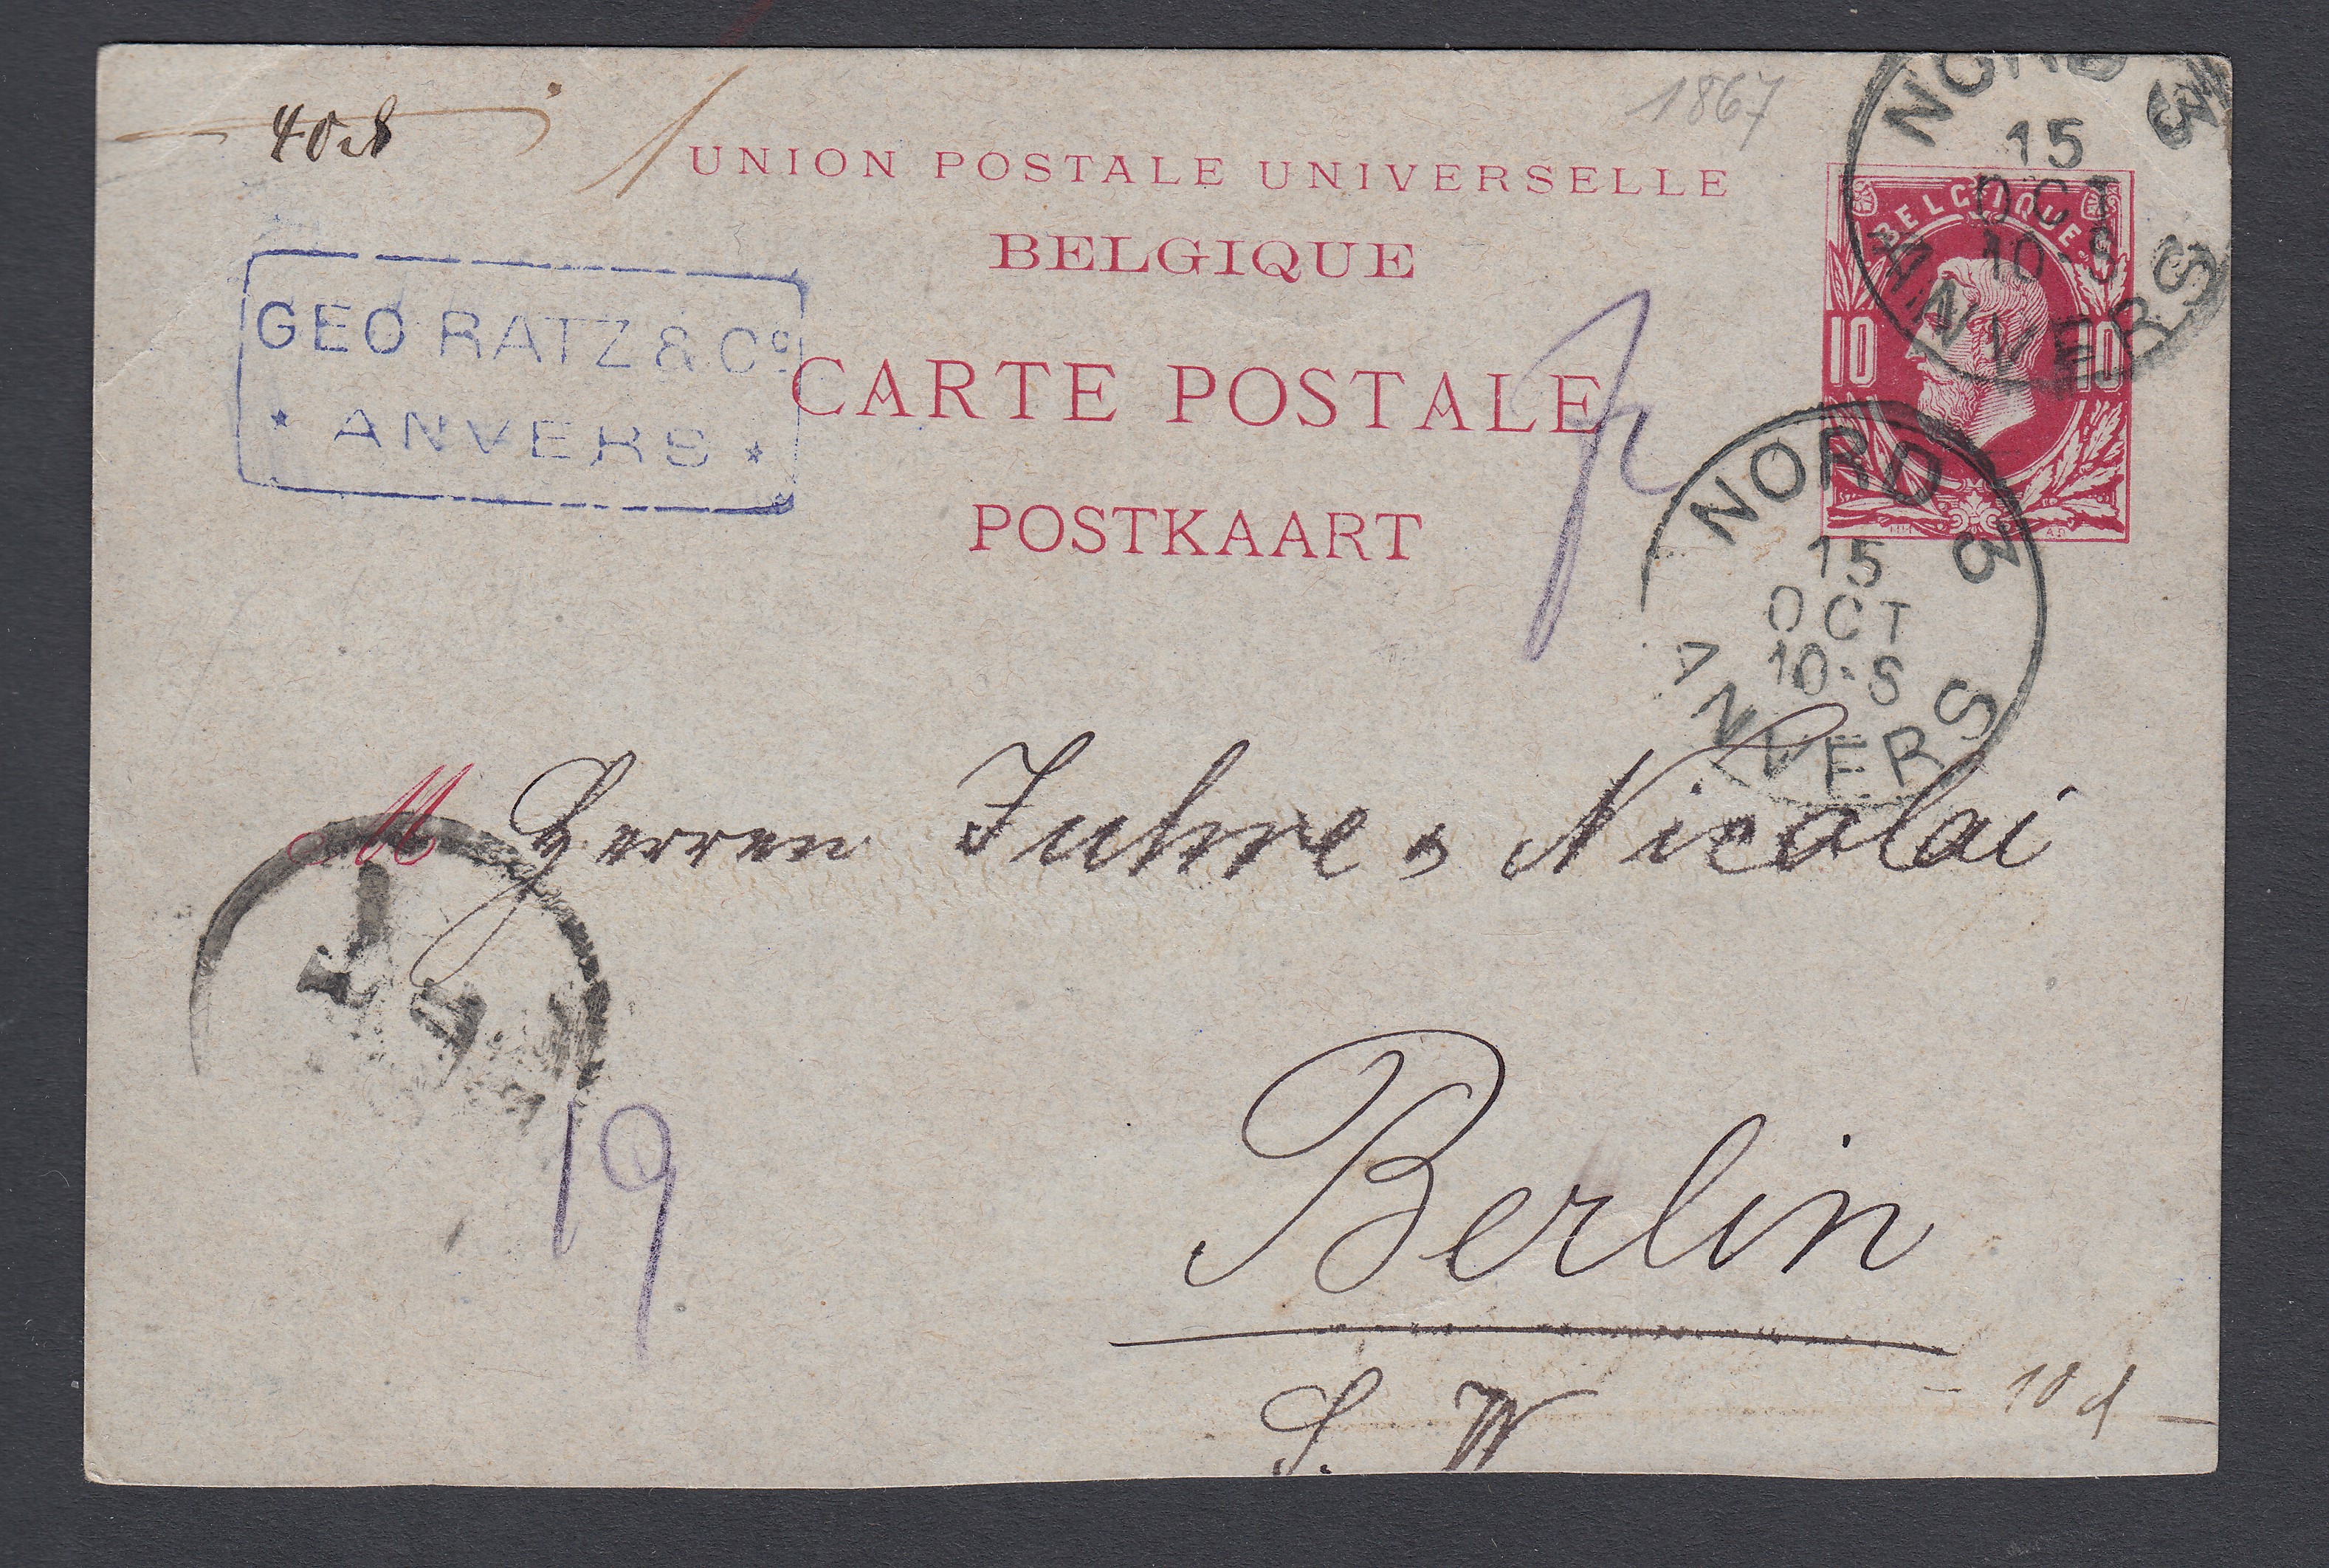 1867
40
UNION POSTALE UNIVERSELLE
BELGIQUE
CARTE POSTALE
POSTKAART
GEO RATZ & Cº
* ANVERS *
NORD 3
15
OCT
10-S
ANVERS
BELGIQUE
10 10
NORD 3
15
OCT
10-S
ANVERS
M Herren Fuhre & Nicolai
19
Berlin
S. W
10 d